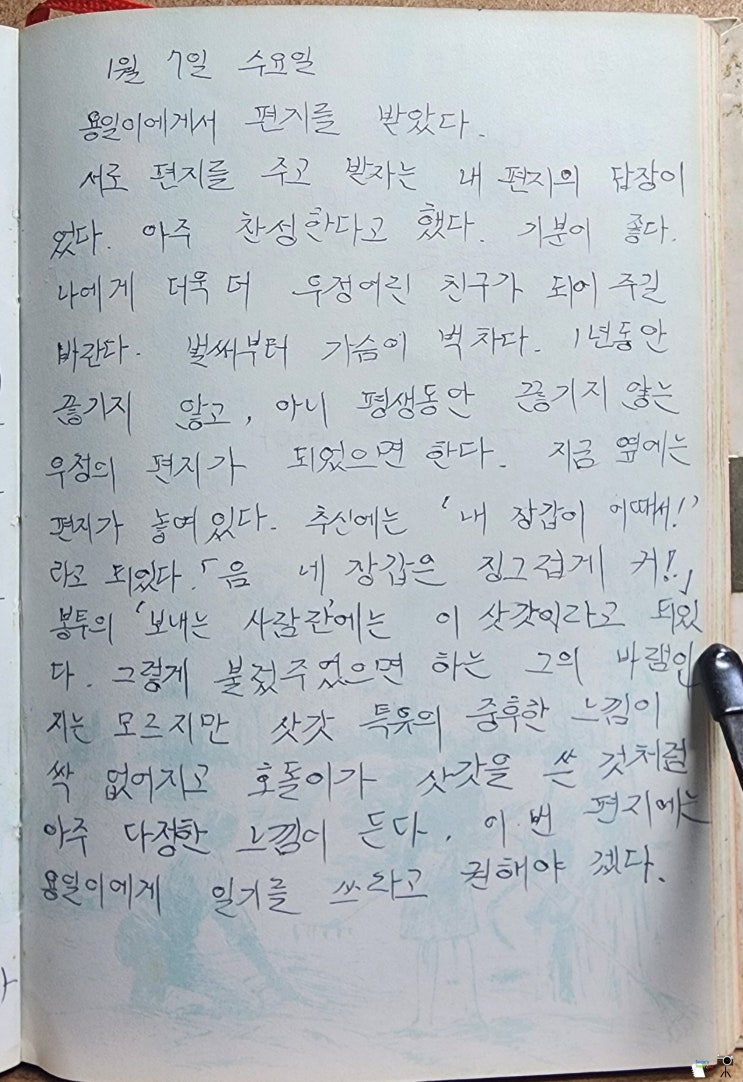 1월 7일 수요일
용일이에게서 편지를 받았다.
서로 편지를 주고 받자는 내 편지의 답장이
었다. 아주 찬성한다고 했다. 기분이 좋다.
나에게 더욱 더 우정어린 친구가 되어 주길
바란다. 벌써부터 가슴이 벅차다. 1년동안
끊기지 않고, 아니 평생동안 끊기지 않는
우정의 편지가 되었으면 한다. 지금 옆에는
편지가 놓여있다. 추신에는 '내 장갑이 어때서!'
라고 되있다.「음 네 장갑은 징그럽게 커!」
봉투의 '보내는 사람란'에는 이 삿갓이라고 되있
다. 그렇게 불렀주었으면 하는 그의 바램인
지는 모르지만 삿갓 특유의 중후한 느낌이
싹 없어지고 호돌이가 삿갓을 쓴 것처럼
아주 다정한 느낌이 든다. 이번 편지에는
용일이에게 일기를 쓰라고 권해야 겠다.